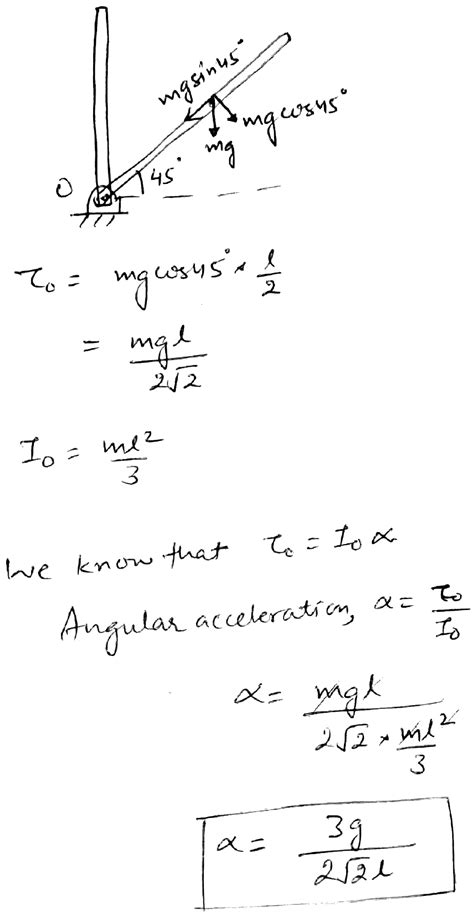 mgsin45°
mgcos45°
mg
45°
O
τ₀ = mgcos45° × l/2
= mgl/2√2
I₀ = ml²/3
We know that τ₀ = I₀ α
Angular acceleration, α = τ₀/I₀
α = mgl/(2√2 × ml²/3)
α = 3g/2√2l